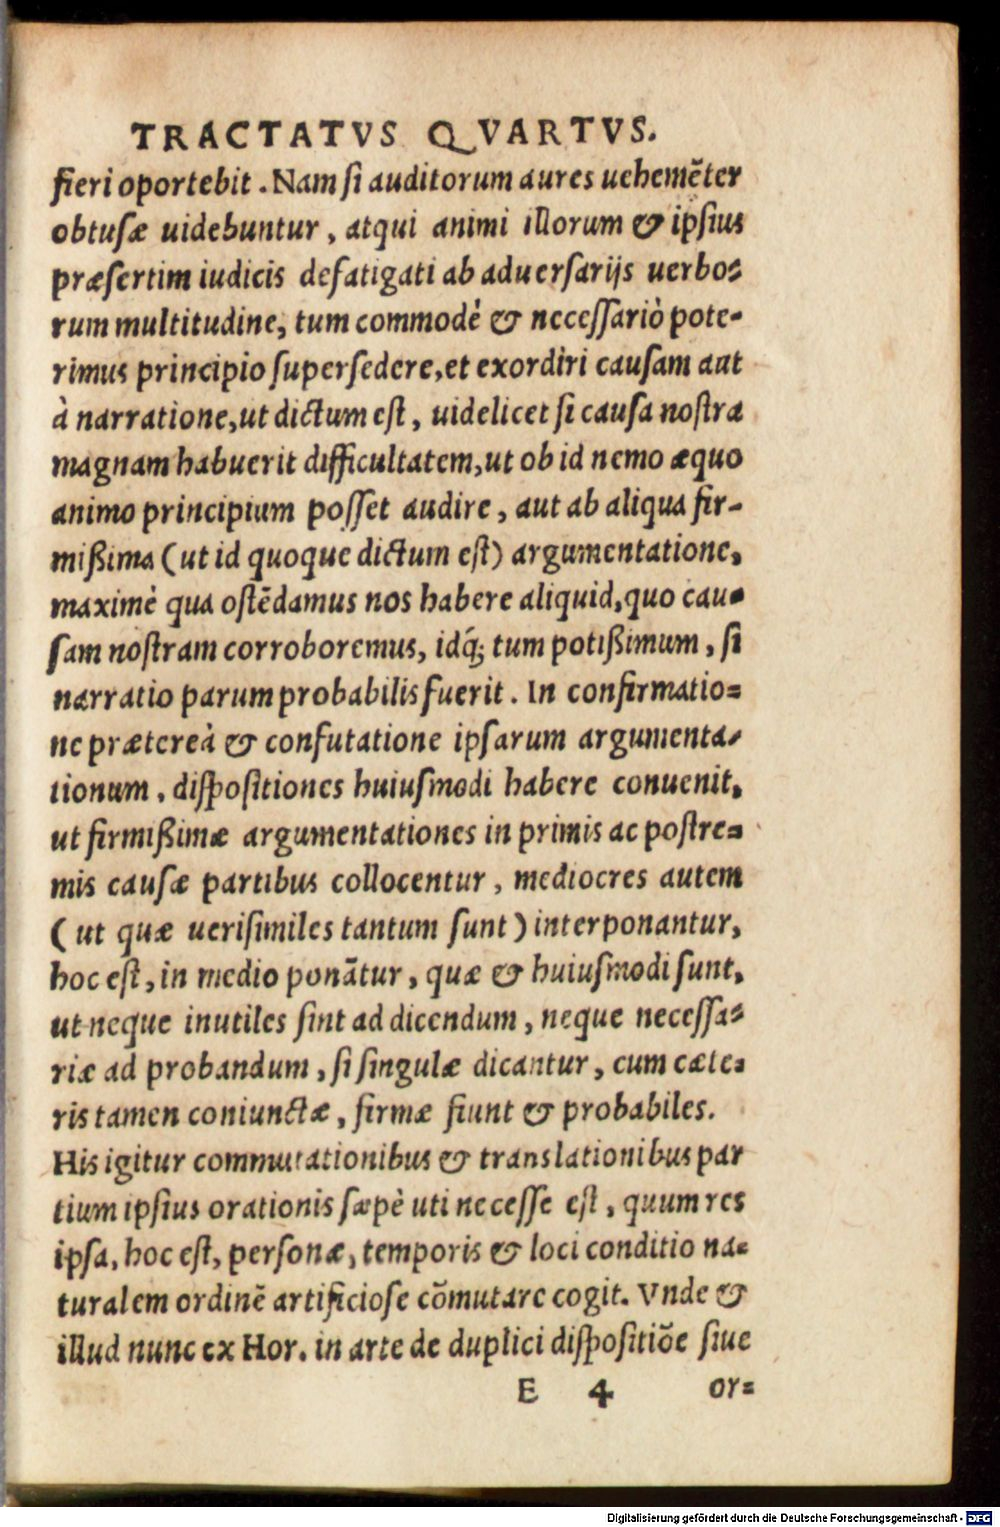 TRACTATVS QVARTVS.
fieri oportebit. Nam si auditorum aures uehemẽter
obtusæ uidebuntur, atqui animi illorum & ipsius
præsertim iudicis defatigati ab aduersarijs uerbo=
rum multitudine, tum commodè & necessariò pote-
rimus principio supersedere, et exordiri causam aut
à narratione, ut dictum est, uidelicet si causa nostra
magnam habuerit difficultatem, ut ob id nemo æquo
animo principium posset audire, aut ab aliqua fir-
mißima (ut id quoque dictum est) argumentatione,
maximè qua ostẽdamus nos habere aliquid, quo cau=
sam nostram corroboremus, idq́; tum potißimum, si
narratio parum probabilis fuerit. In confirmatio=
ne prætereà & confutatione ipsarum argumenta-
tionum, dispositiones huiusmodi habere conuenit,
ut firmißimæ argumentationes in primis ac postre=
mis causæ partibus collocentur, mediocres autem
(ut quæ uerisimiles tantum sunt) interponantur,
hoc est, in medio ponãtur, quæ & huiusmodi sunt,
ut neque inutiles sint ad dicendum, neque necessa=
riæ ad probandum, si singulæ dicantur, cum cæte=
ris tamen coniunctæ, firmæ fiunt & probabiles.
His igitur commutationibus & translationibus par
tium ipsius orationis sæpè uti necesse est, quum res
ipsa, hoc est, personæ, temporis & loci conditio na=
turalem ordinẽ artificiose cõmutare cogit. Vnde &
illud nunc ex Hor. in arte de duplici dispositiõe siue
E 4 or=
Digitalisierung gefördert durch die Deutsche Forschungsgemeinschaft - DFG